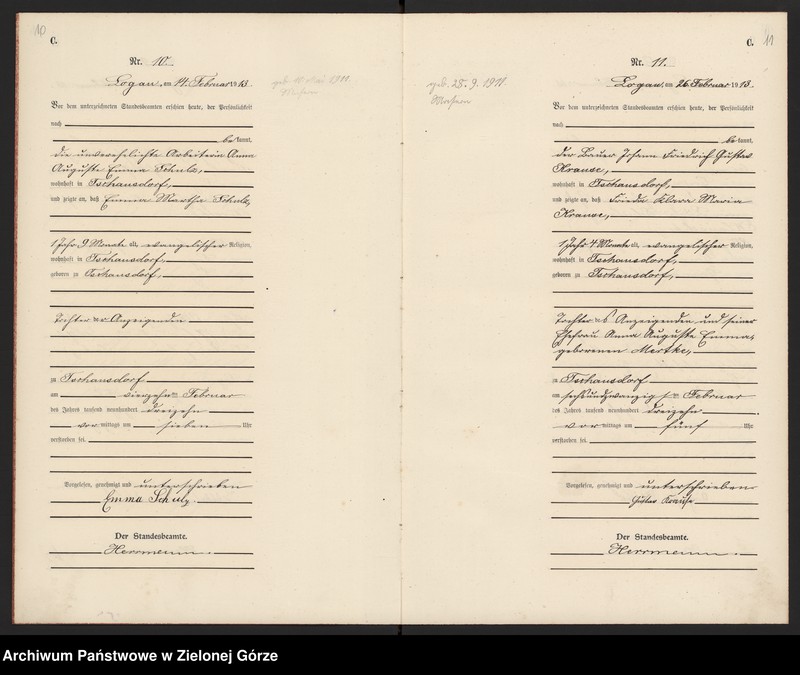 10
C.
Nr. 10.
Logau, am 14. Februar 1913.
geb. 1911.
Vor dem unterzeichneten Standesbeamten erschien heute, der Persönlichkeit
nach
bekannt,
die unverehelichte Arbeiterin Anna
Auguste Emma Schulz,
wohnhaft in Tschausdorf,
und zeigte an, daß Emma Martha Schulz,
1 Jahr 9 Monate alt, evangelischer Religion,
wohnhaft in Tschausdorf,
geboren zu Tschausdorf,
Tochter der Anzeigenden
zu Tschausdorf
am vierzehnten Februar
des Jahres tausend neunhundert dreizehn
vormittags um sieben Uhr
verstorben sei.
Vorgelesen, genehmigt und unterschrieben
Emma Schulz.
Der Standesbeamte.
Herrmann.
C. 11
Nr. 11.
Logau, am 26. Februar 1913.
geb. 28. 9. 1911
Vor dem unterzeichneten Standesbeamten erschien heute, der Persönlichkeit
nach
bekannt,
der Bauer Johann Friedrich Gustav
Krause,
wohnhaft in Tschausdorf,
und zeigte an, daß Frieda Klara Maria
Krause,
1 Jahr 4 Monate alt, evangelischer Religion,
wohnhaft in Tschausdorf,
geboren zu Tschausdorf,
Tochter des Anzeigenden und seiner
Ehefrau Anna Auguste Emma,
geborenen Mertke,
zu Tschausdorf
am sechsundzwanzigsten Februar
des Jahres tausend neunhundert dreizehn
vormittags um fünf Uhr
verstorben sei.
Vorgelesen, genehmigt und unterschrieben
Gustav Krause
Der Standesbeamte.
Herrmann.
Archiwum Państwowe w Zielonej Górze